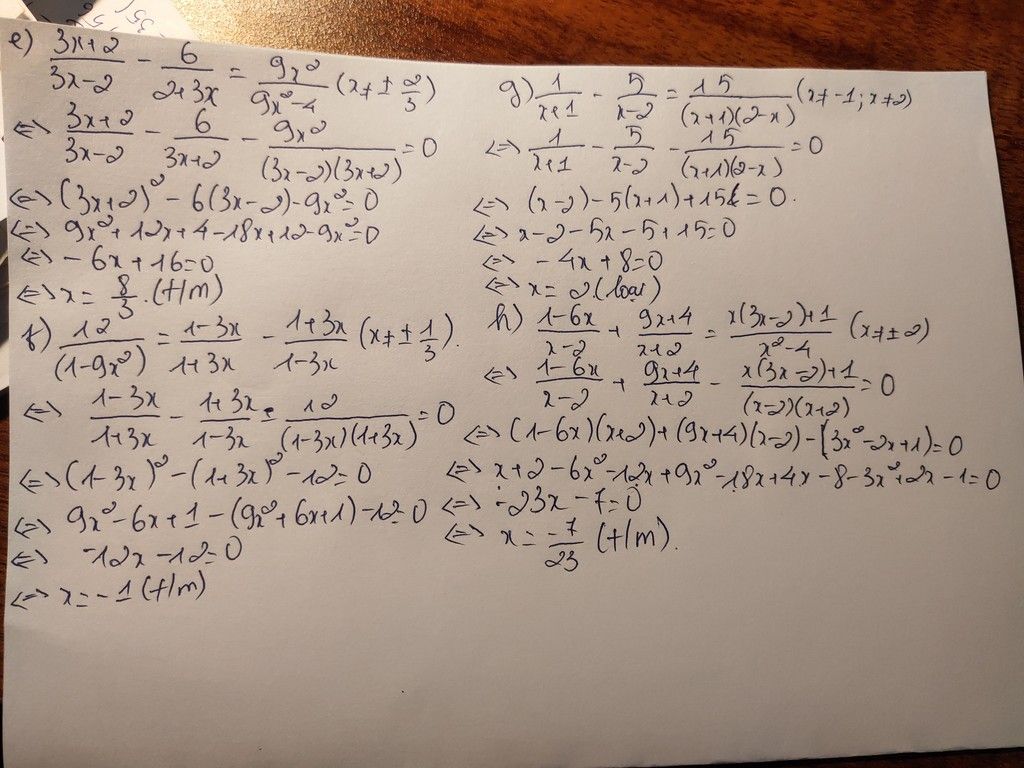 e) \frac{3x+2}{3x-2} - \frac{6}{2+3x} = \frac{9x^2}{9x^2-4} (x ≠ ± \frac{2}{3})
⇔ \frac{3x+2}{3x-2} - \frac{6}{3x+2} - \frac{9x^2}{(3x-2)(3x+2)} = 0
⇔ (3x+2)^2 - 6(3x-2) - 9x^2 = 0
⇔ 9x^2 + 12x + 4 - 18x + 12 - 9x^2 = 0
⇔ - 6x + 16 = 0
⇔ x = \frac{8}{3} (t/m)
f) \frac{12}{(1-9x^2)} = \frac{1-3x}{1+3x} - \frac{1+3x}{1-3x} (x ≠ ± \frac{1}{3}).
⇔ \frac{1-3x}{1+3x} - \frac{1+3x}{1-3x} - \frac{12}{(1-3x)(1+3x)} = 0
⇔ (1-3x)^2 - (1+3x)^2 - 12 = 0
⇔ 9x^2 - 6x + 1 - (9x^2 + 6x + 1) - 12 = 0
⇔ -12x - 12 = 0
⇔ x = -1 (t/m)
g) \frac{1}{x+1} - \frac{5}{x-2} = \frac{15}{(x+1)(2-x)} (x ≠ -1; x ≠ 2)
⇔ \frac{1}{x+1} - \frac{5}{x-2} - \frac{15}{(x+1)(2-x)} = 0
⇔ (x-2) - 5(x+1) + 15 = 0.
⇔ x - 2 - 5x - 5 + 15 = 0
⇔ - 4x + 8 = 0
⇔ x = 2 (loại)
h) \frac{1-6x}{x-2} + \frac{9x+4}{x+2} = \frac{x(3x-2)+1}{x^2-4} (x ≠ ± 2)
⇔ \frac{1-6x}{x-2} + \frac{9x+4}{x+2} - \frac{x(3x-2)+1}{(x-2)(x+2)} = 0
⇔ (1-6x)(x+2) + (9x+4)(x-2) - (3x^2 - 2x + 1) = 0
⇔ x + 2 - 6x^2 - 12x + 9x^2 - 18x + 4x - 8 - 3x^2 + 2x - 1 = 0
⇔ -23x - 7 = 0
⇔ x = \frac{-7}{23} (t/m).